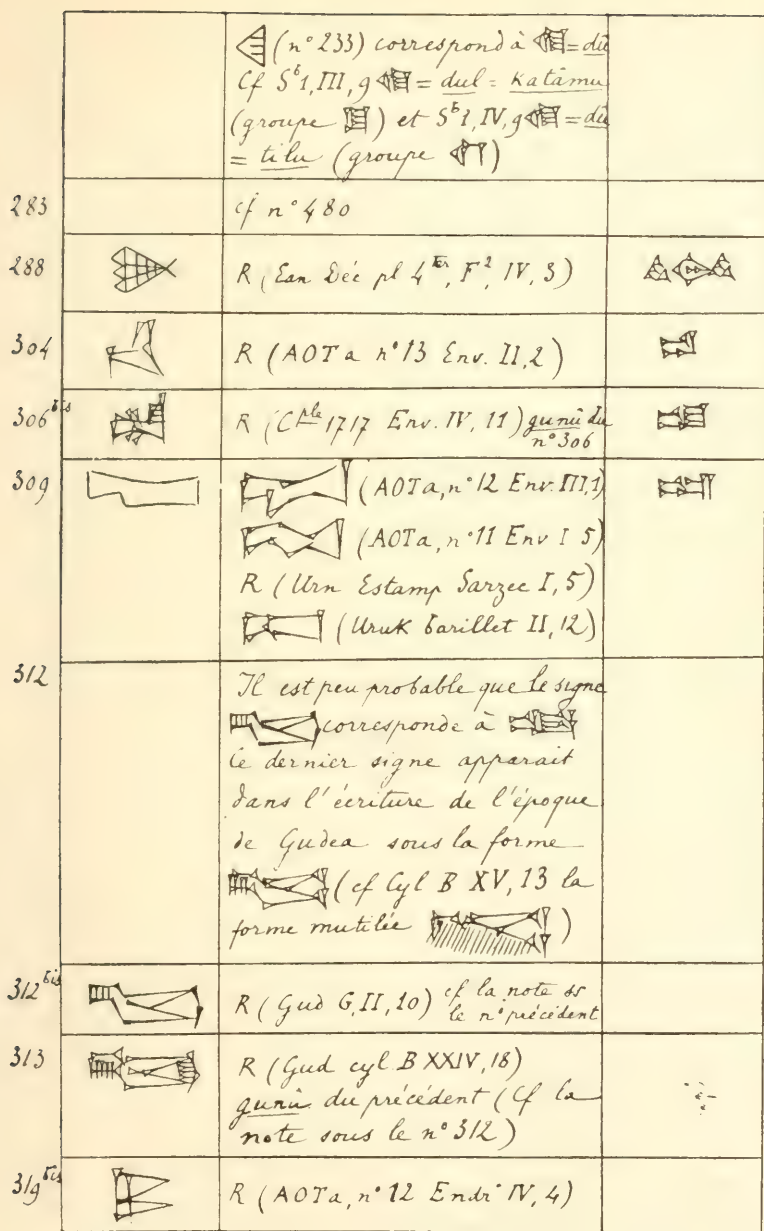 (n° 233) correspond à = dû
Cf Sᵇ1, III, 9 = dul = katâmu
(groupe ) et Sᵇ1, IV, 9 = du
= tilu (groupe )
283 cf n° 480
288 R (Ean Déc pl 4ᵗᵉʳ, F², IV, 3)
304 R (AOTa n° 13 Env. II, 2)
306ᵇⁱˢ R (Cᵖˡᵉ 1717 Env. IV, 11) gunû du
n° 306
309 (AOTa, n° 12 Env. III, 1)
(AOTa, n° 11 Env I 5)
R (Urn Estamp Sarzec I, 5)
(Uruk barillet II, 12)
312 Il est peu probable que le signe
corresponde à
Ce dernier signe apparait
dans l'écriture de l'époque
de Gudea sous la forme
(cf Cyl B XV, 13 la
forme mutilée )
312ᵇⁱˢ R (Gud G, II, 10) cf la note ss
le n° précédent
313 R (Gud cyl B XXIV, 18)
gunû du précédent (Cf la
note sous le n° 312)
319ᵇⁱˢ R (AOTa, n° 12 IV, 4)